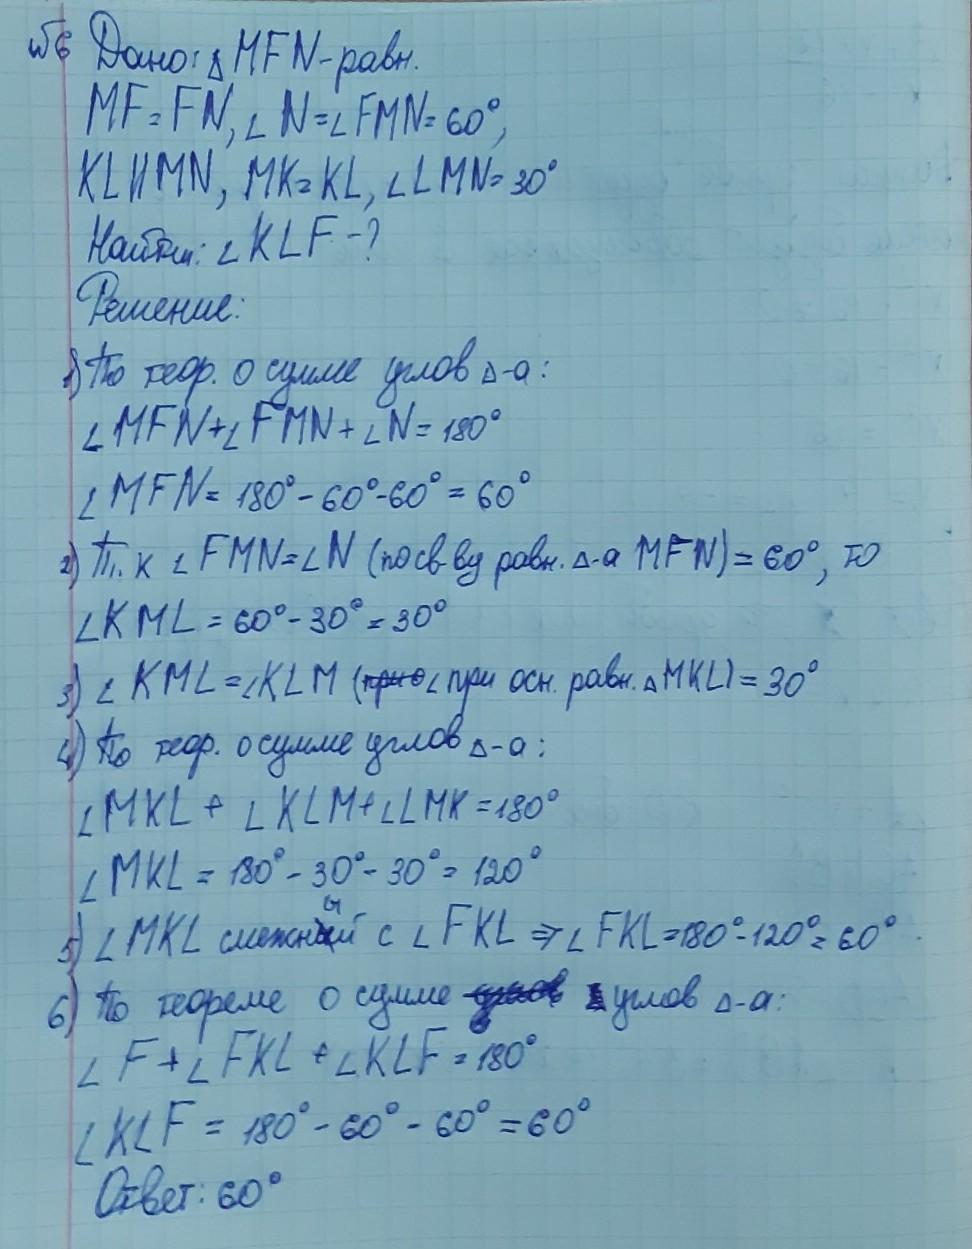 №6 Дано: △MFN-равн.
MF=FN, ∠N=∠FMN=60°,
KL||MN, MK=KL, ∠LMN=30°
Найти: ∠KLF-?
Решение:
1) По теор. о сумме углов △-а:
∠MFN+∠FMN+∠N=180°
∠MFN=180°-60°-60°=60°
2) Т.к ∠FMN=∠N (по св-ву равн. △-а MFN)=60°, то
∠KML=60°-30°=30°
3) ∠KML=∠KLM (∠ при осн. равн. △MKL)=30°
4) По теор. о сумме углов △-а:
∠MKL+∠KLM+∠LMK=180°
∠MKL=180°-30°-30°=120°
5) ∠MKL смежный с ∠FKL ⇒ ∠FKL=180°-120°=60°.
6) По теореме о сумме углов △-а:
∠F+∠FKL+∠KLF=180°
∠KLF=180°-60°-60°=60°
Ответ: 60°